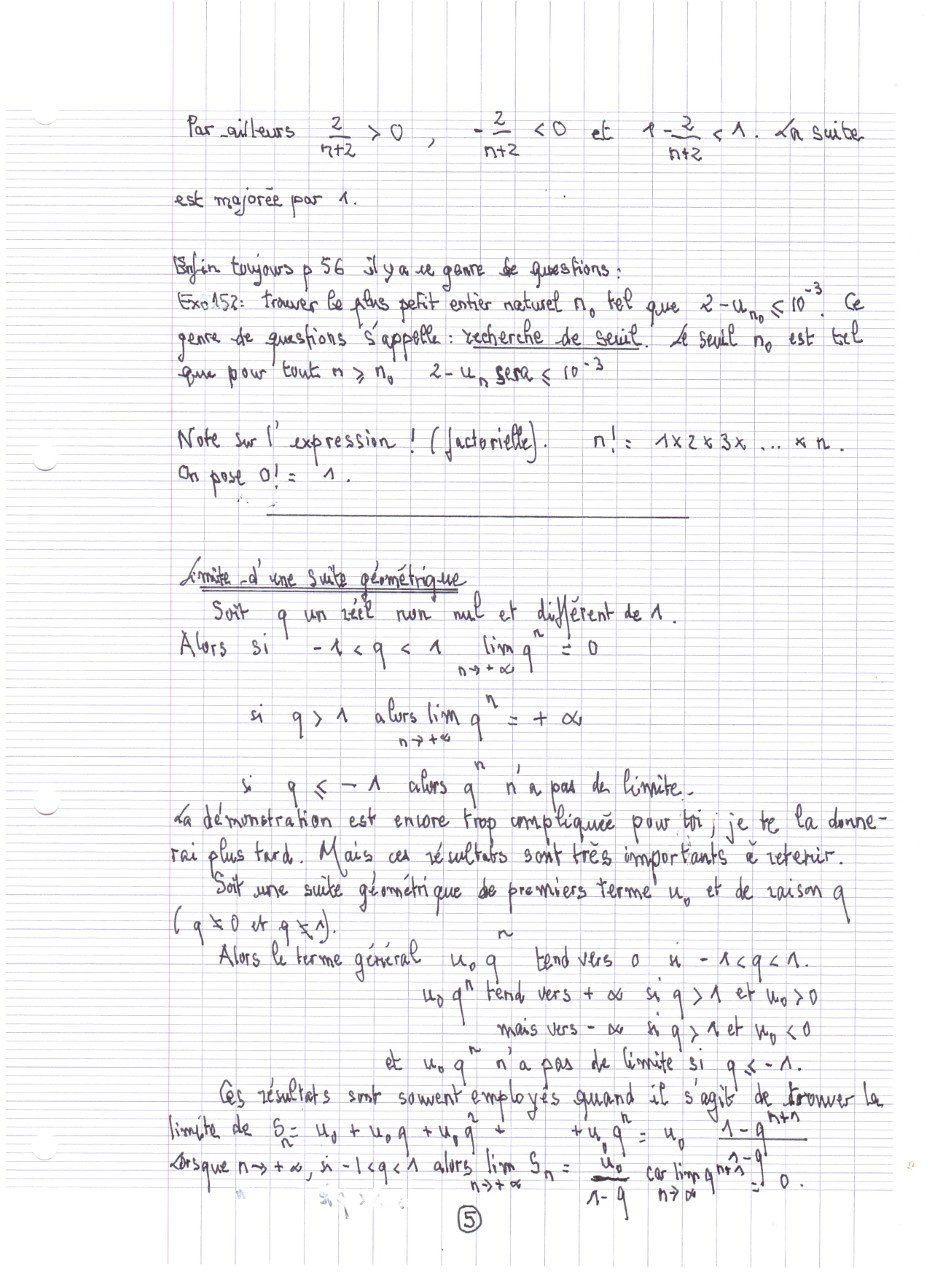 Par ailleurs 2/(n+2) > 0 , -2/(n+2) < 0 et 1 - 2/(n+2) < 1. La suite
est majorée par 1.
Enfin toujours p 56 il y a ce genre de questions :
Exo 152: trouver le plus petit entier naturel n₀ tel que 2 - u_n₀ ⩽ 10⁻³. Ce
genre de questions s'appelle : recherche de seuil. Le seuil n₀ est tel
que pour tout n ⩾ n₀ 2 - u_n sera ⩽ 10⁻³
Note sur l'expression ! (factorielle). n! = 1 × 2 × 3 × ... × n.
On pose 0! = 1.
Limite d'une suite géométrique
Soit q un réel non nul et différent de 1.
Alors si -1 < q < 1 lim_{n→+∞} qⁿ = 0
si q > 1 alors lim_{n→+∞} qⁿ = +∞
si q ⩽ -1 alors qⁿ n'a pas de limite.
La démonstration est encore trop compliquée pour toi ; je te la donne-
rai plus tard. Mais ces résultats sont très importants à retenir.
Soit une suite géométrique de premiers terme u₀ et de raison q
(q ≠ 0 et q ≠ 1).
Alors le terme général u₀ qⁿ tend vers 0 si -1 < q < 1.
u₀ qⁿ tend vers +∞ si q > 1 et u₀ > 0
mais vers -∞ si q > 1 et u₀ < 0
et u₀ qⁿ n'a pas de limite si q ⩽ -1.
Ces résultats sont souvent employés quand il s'agit de trouver la
limite de S_n = u₀ + u₀ q + u₀ q² + + u₀ qⁿ = u₀ (1 - qⁿ⁺¹)/(1 - q)
Lorsque n → +∞, si -1 < q < 1 alors lim_{n→+∞} S_n = u₀/(1 - q) car lim_{n→∞} qⁿ⁺¹ = 0.
5